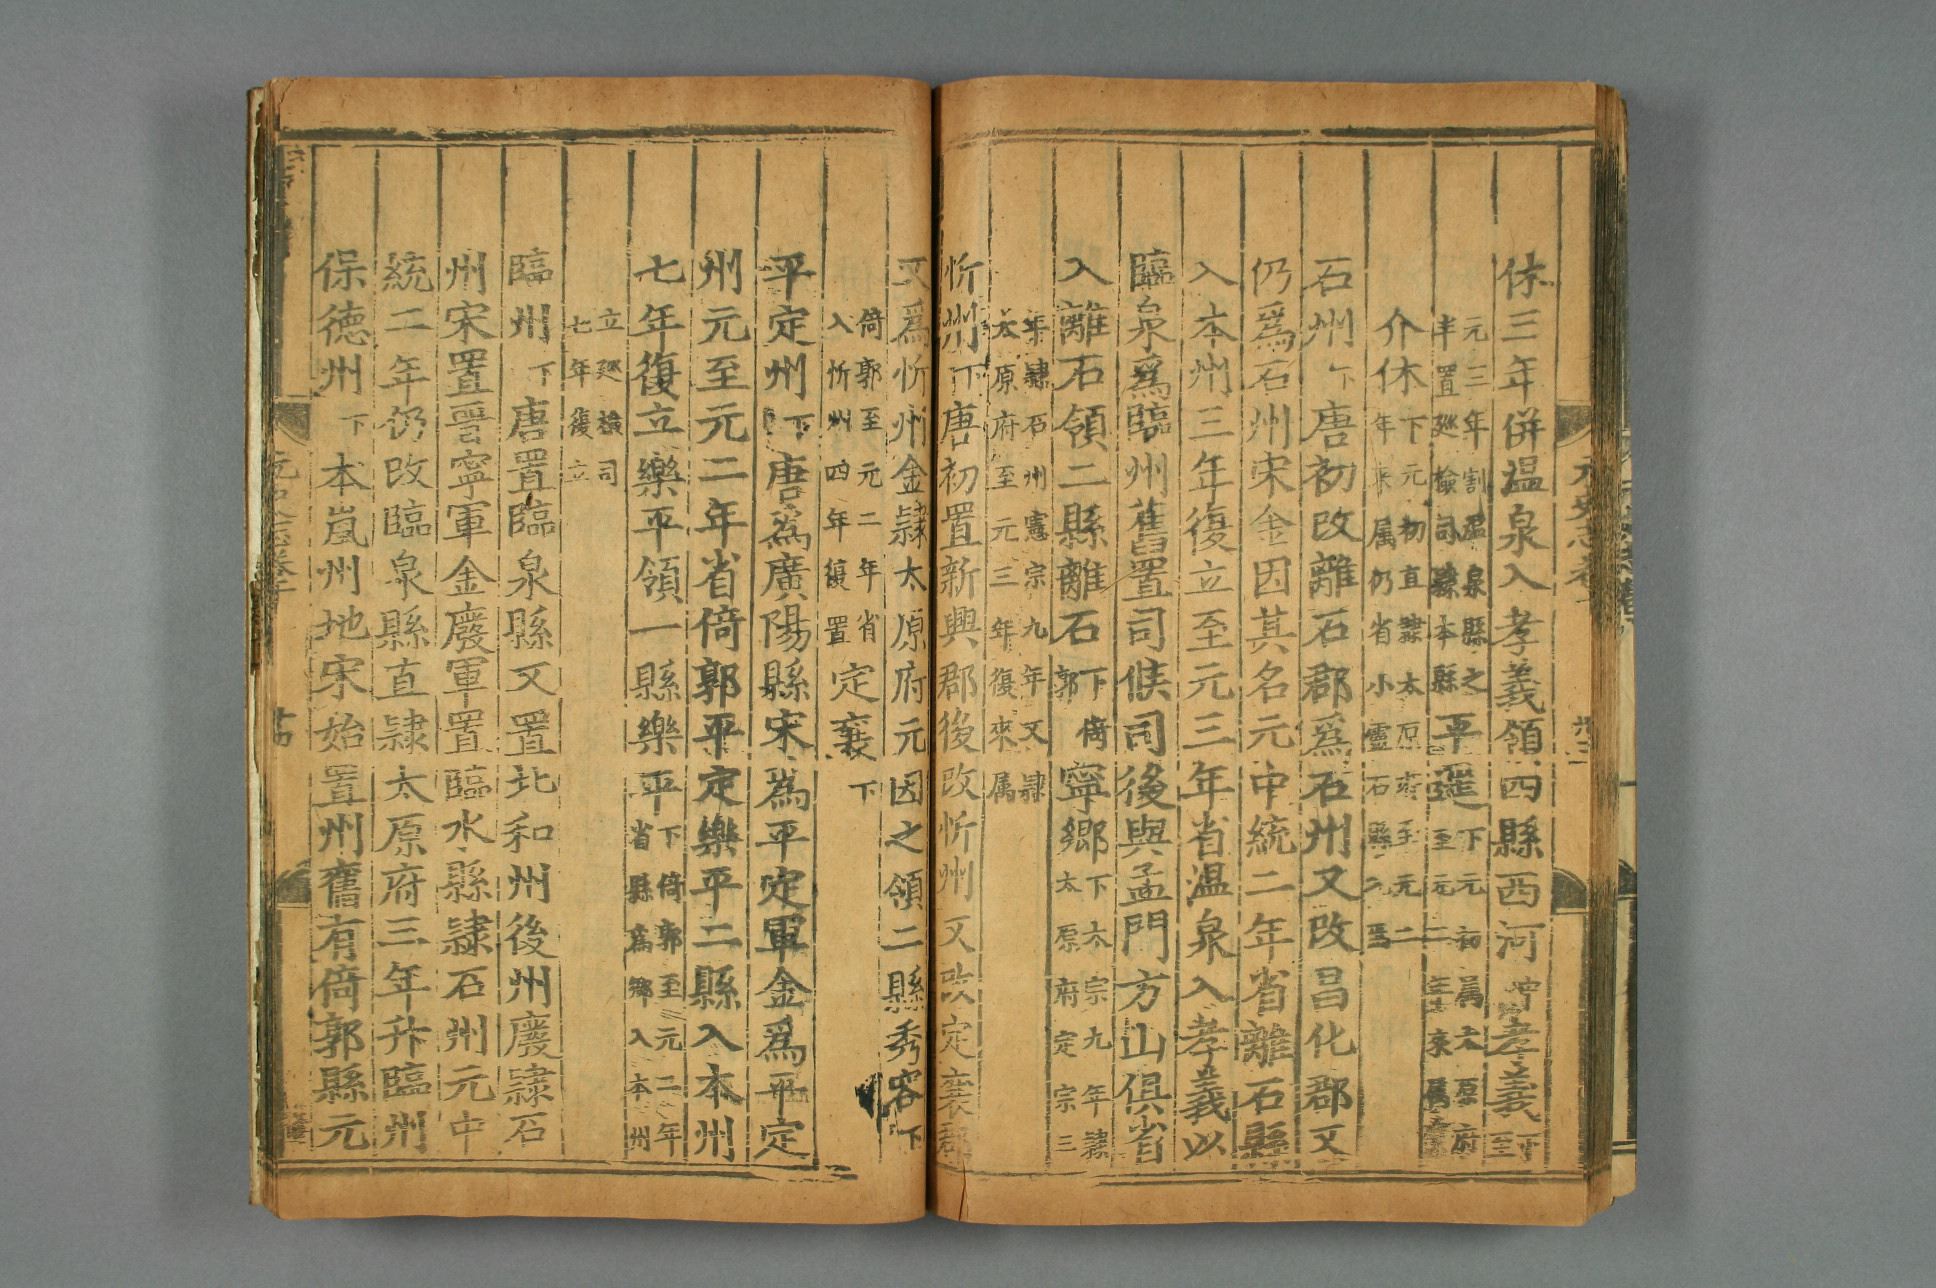 休三年併温泉入孝義領四縣西河中孝義下至
元三年割温泉縣之
半置巡檢司隸本縣平遥下元初属太原府
至元二年來屬
介休下元初直隸太原府至元二
年來属仍省小靈石縣入焉
石州下唐初改離石郡爲石州又改昌化郡又
仍爲石州宋金因其名元中統二年省離石縣
入本州三年復立至元三年省温泉入孝義以
臨泉爲臨州舊置司候司後與孟門方山俱省
入離石領二縣離石下倚
郭寧鄉下太宗九年隸
太原府定宗三
年隸石州憲宗九年又隸
太原府至元三年復來属
忻州下唐初置新興郡後改忻州又改定襄郡
又爲忻州金隸太原府元因之領二縣秀容下
倚郭至元二年省
入忻州四年復置定襄下
平定州下唐爲廣陽縣宋爲平定軍金爲平定
州元至元二年省倚郭平定樂平二縣入本州
七年復立樂平領一縣樂平下倚郭至元二年
省縣爲鄉入本州
立巡檢司
七年復立
臨州下唐置臨泉縣又置北和州後州廢隸石
州宋置晋寧軍金廢軍置臨水縣隸石州元中
統二年仍改臨泉縣直隸太原府三年升臨州
保德州下本嵐州地宋始置州舊有倚郭縣元